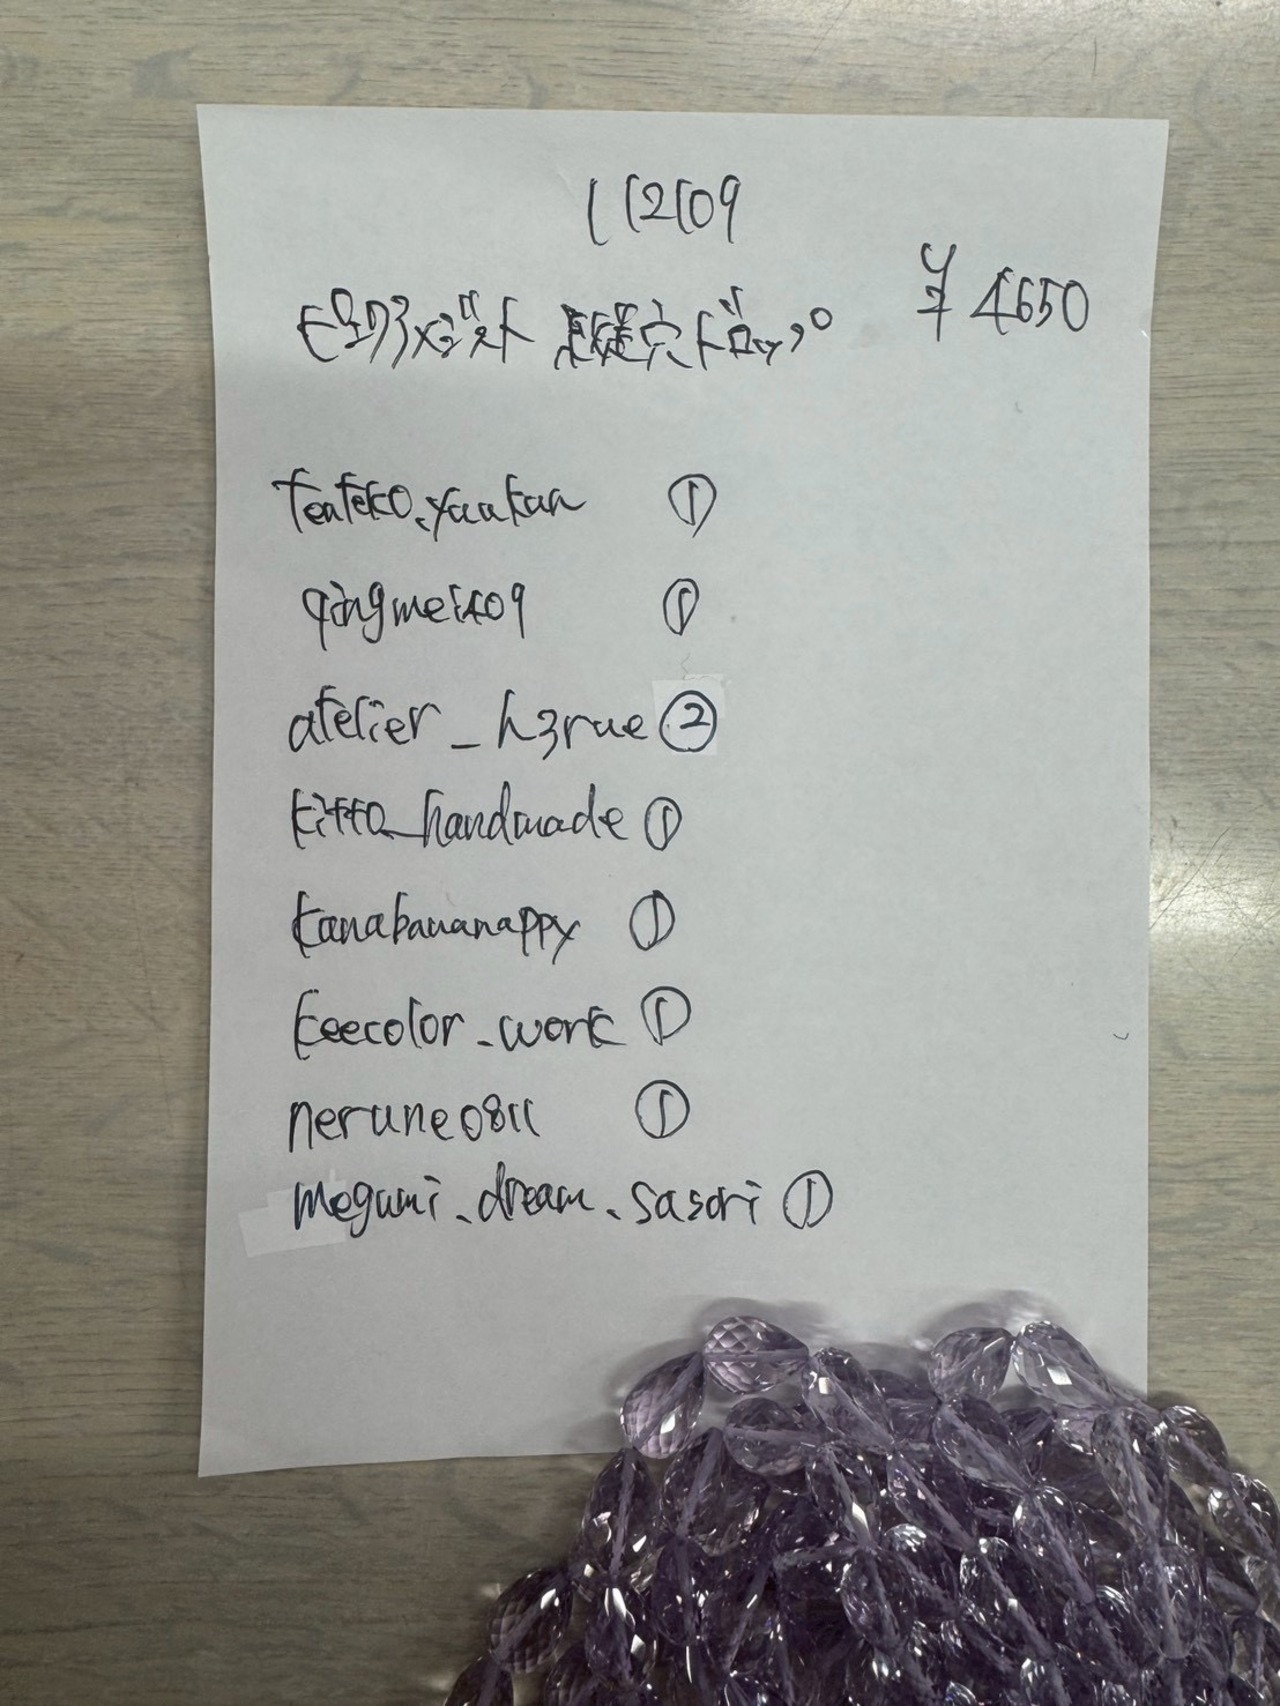 112109
¥4650
ピンクアメジスト 縦穴ドロップ
teateko.yaukan ①
qingmei409 ①
atelier_h3rue ②
kitto_handmade ①
kanabananappy ①
keecolor_work ①
nerune0811 ①
megumi.dream.sasori ①